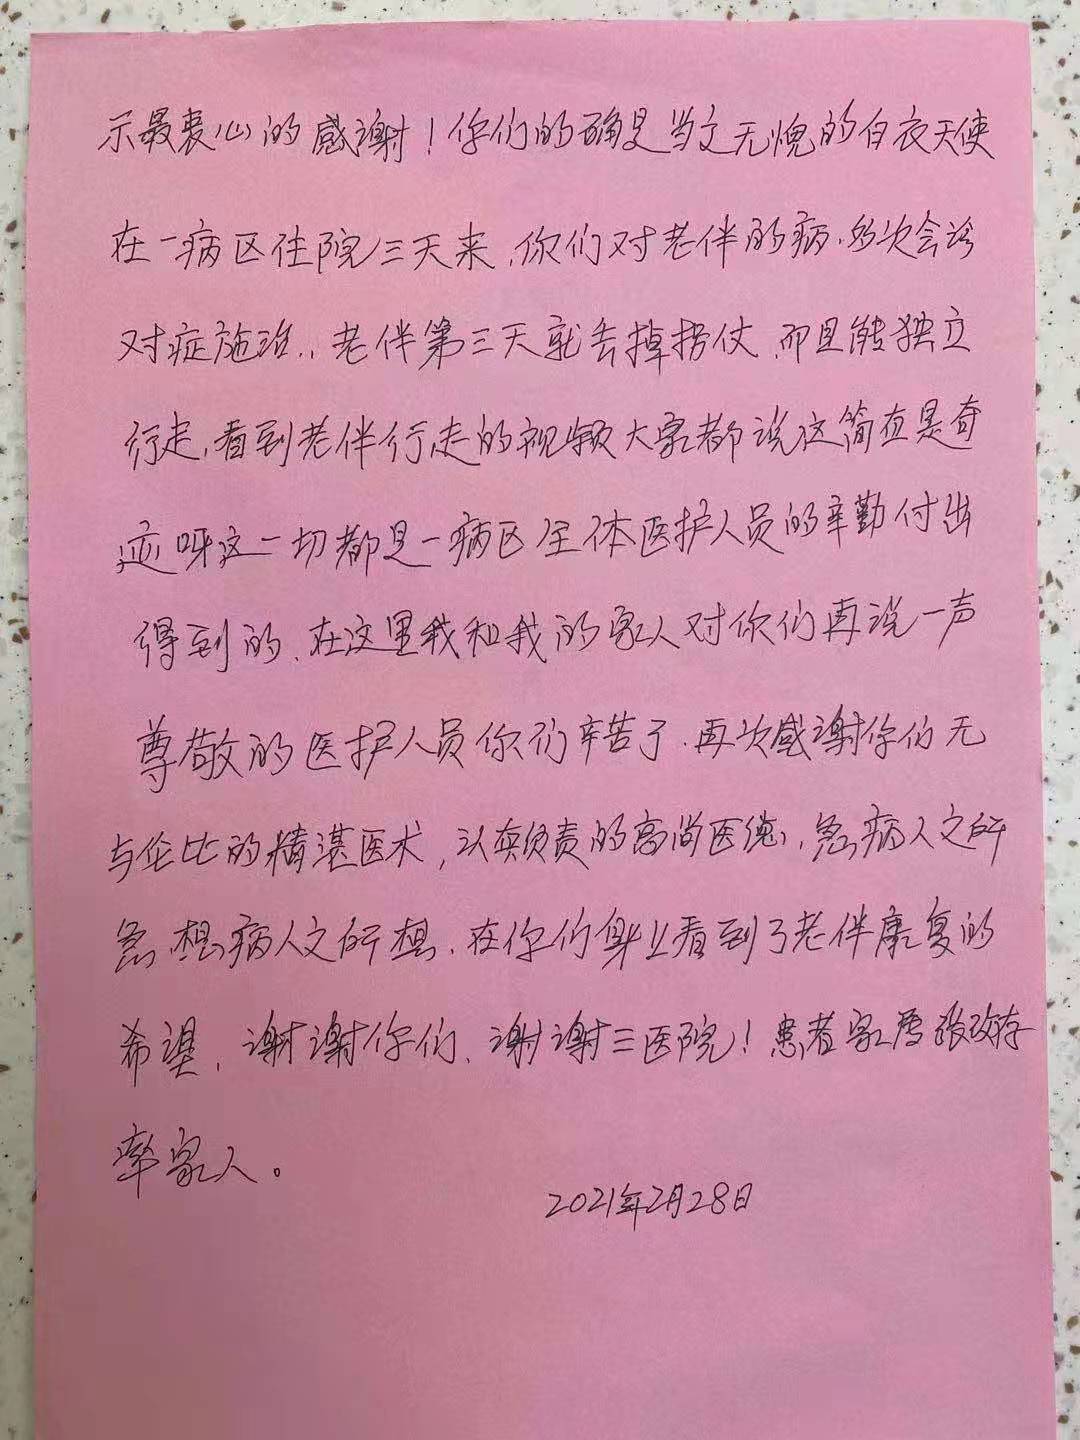 示最衷心的感谢！你们的确是当之无愧的白衣天使
在一病区住院三天来，你们对老伴的病，多次会诊
对症施治，，老伴第三天就丢掉拐仗，而且能独立
行走，看到老伴行走的视频大家都说这简直是奇
迹呀这一切都是一病区全体医护人员的辛勤付出
得到的、在这里我和我的家人对你们再说一声
尊敬的医护人员你们辛苦了．再次感谢你们无
与伦比的精湛医术，认真负责的高尚医德，急病人之所
急．想病人之所想．在你们身上看到了老伴康复的
希望，谢谢你们、谢谢三医院！患者家属张改存
率家人。
2021年2月28日